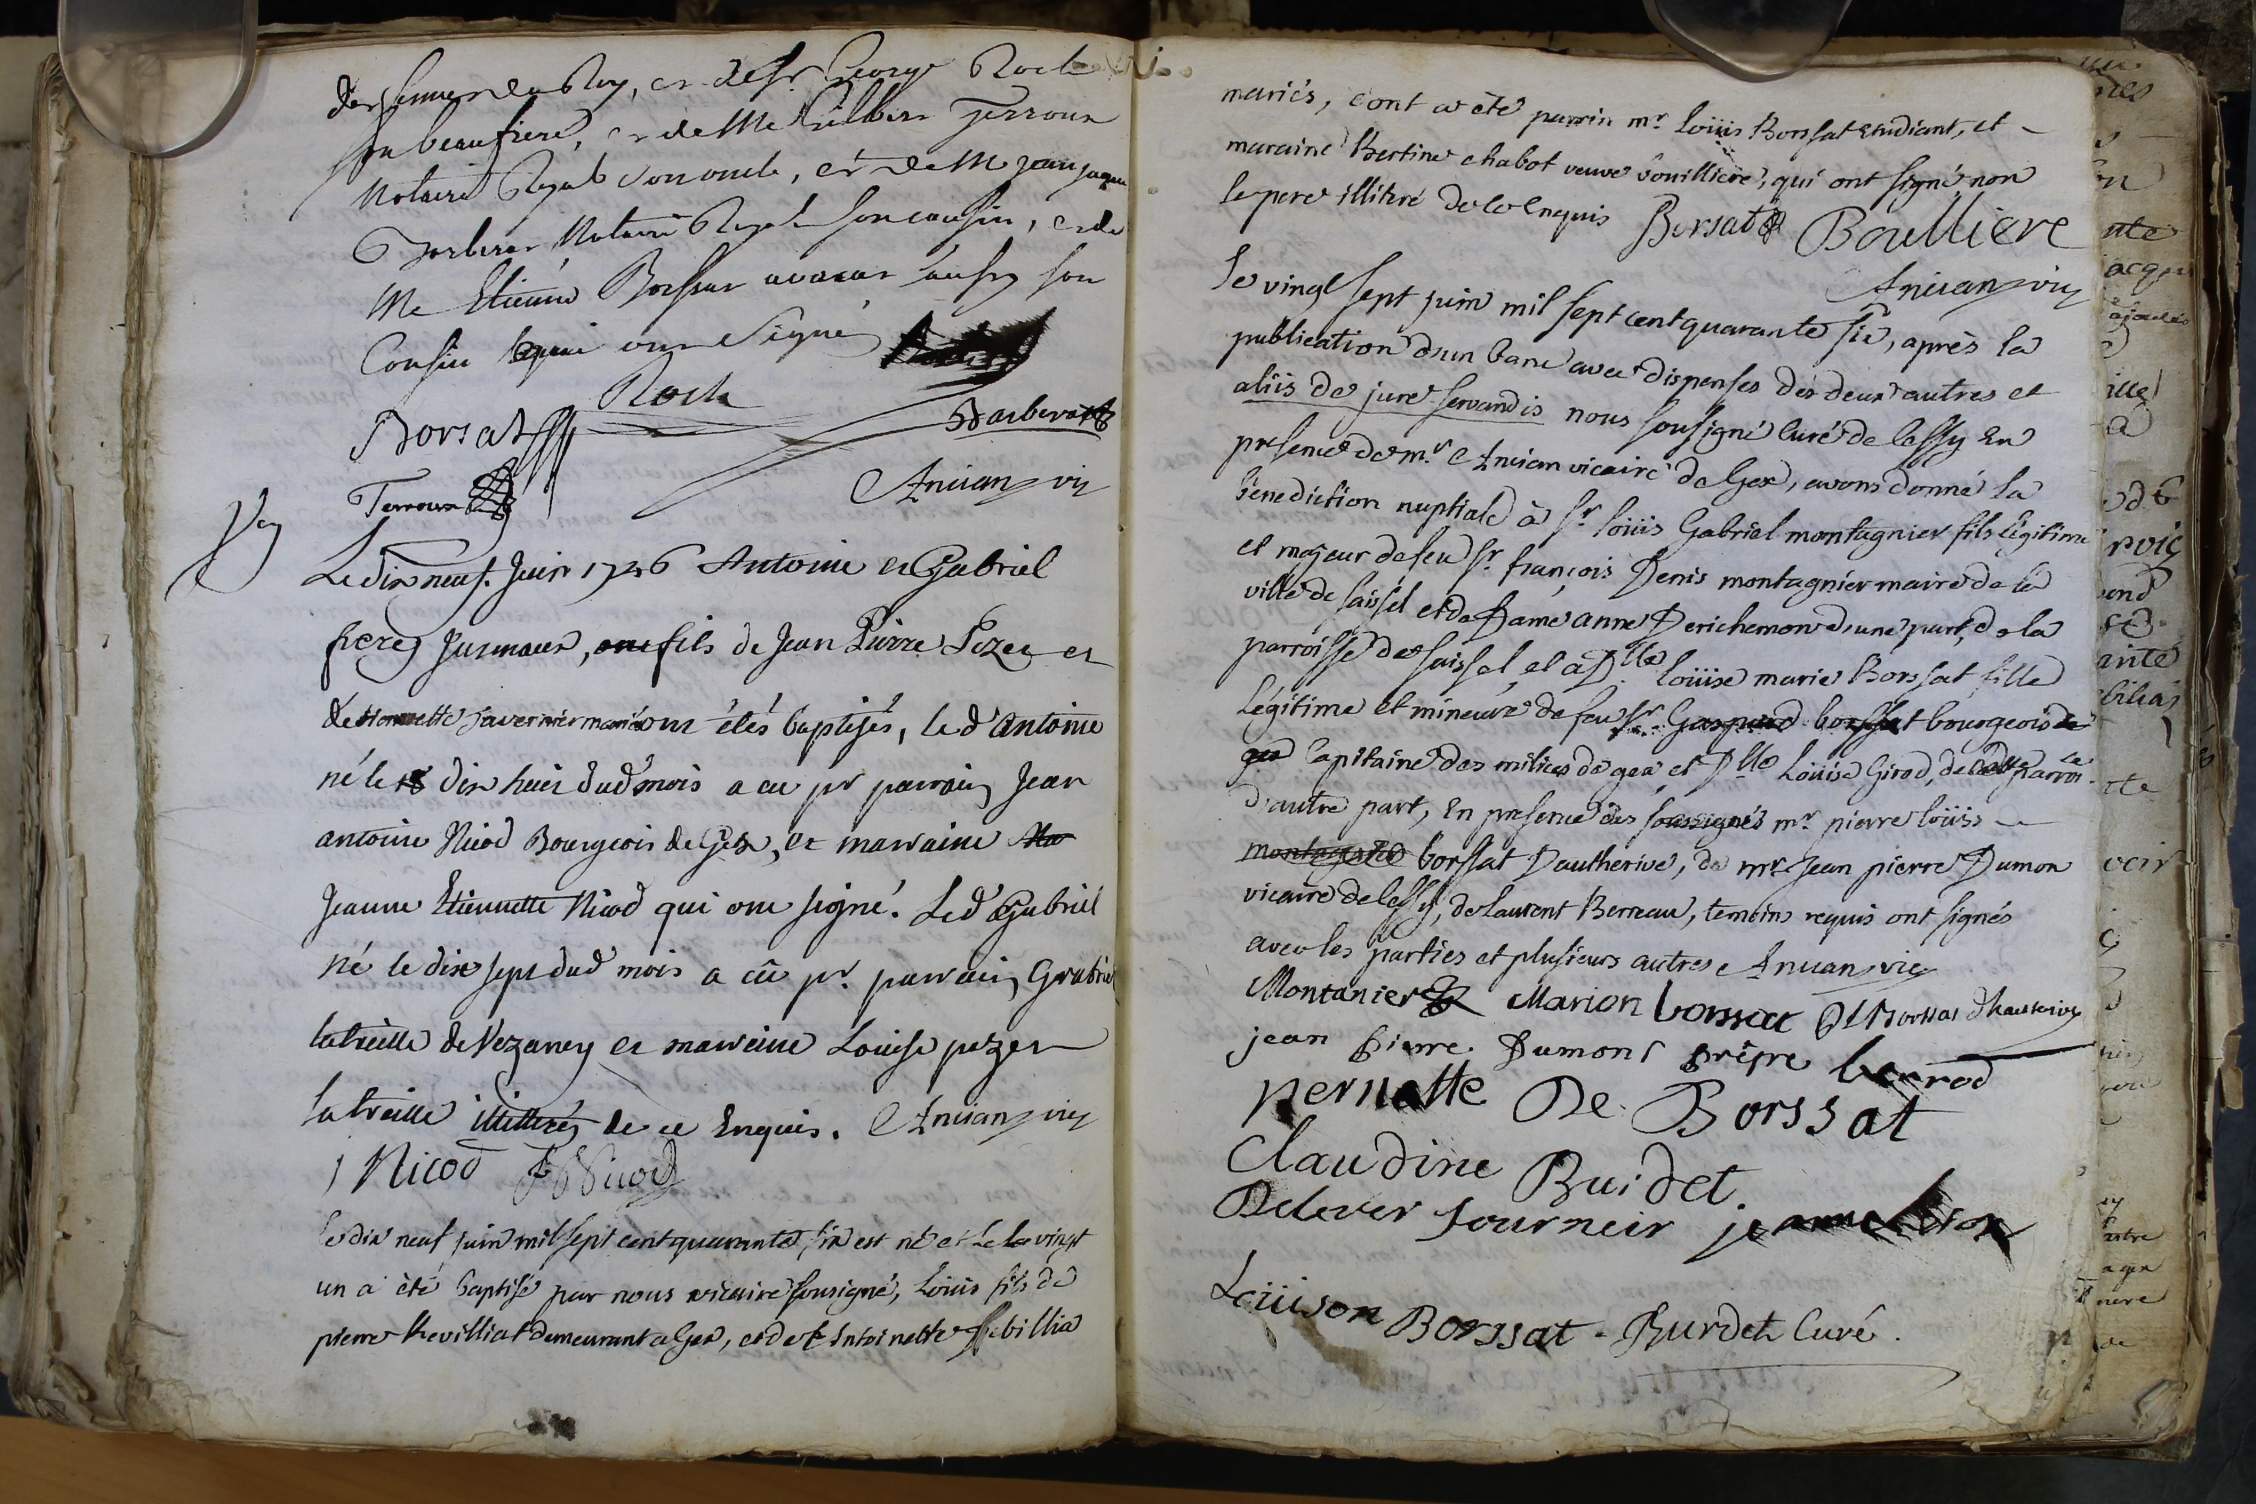 des fermes du Roy, et de Sr George Roch
son beaufrere, et de Me Guilbert Terroux
Notaire Royal son oncle, et de Me jean jaque
Barberat Notaire Royal son cousin, et de
Me Etienne Borssat avocat aussy son
Cousin qui ont signé
Borsat Roch Barberat
Terroux Anician vic
Le dix neuf Juin 1746 Antoine et Gabriel
freres jumeaux, fils de Jean Pierre Pezer et
de tavernier mariés ont étés baptisés, le d antoine
né le dix huit dud mois a eu pr parrain Jean
antoine Nicod Bourgeois de Gex, et marraine
Jeanne Etiennette Nicod qui ont signé. Le d Gabriel
né le dix sept dud mois a eû pr. parrain Grabriel
latreille de Vezancy et marraine Louise pezer
latreille illitterés de ce Enquis. Anician vic
J Nicod Nicod
Le dix neuf juin mil sept cent quarante six est né et le vingt
un a été baptisé par nous vicaire sousigné, Loüis fils de
pierre Revilliat demeurant a Gex, et de Antoinette
mariés, dont a été parrin mr. Loüis Borssat etudiant, et
maraine Bertine chabot veuve bouilliere, qui ont signé non
le pere illiteré de ce enquis Borsat Boulliere
Anician vic
Le vingt sept juin mil sept cent quarante six, après la
publication d'un banc avec dispenses des deux autres et
aliis de jure servandis nous sousigné curé de Cessy en
presence de mr. Anician vicaire de Gex, avons donné la
bénediction nuptiale à Sr. loüis Gabriel montagnier fils légitime
et majeur de feu Sr. françois Denis montagnier maire de la
ville de saissel et de Dame anne Derichemon d'une part, de la
parroisse de saissel, et à Dlle loüise marie Borssat fille
Légitime et mineure de feu Sr. Gaspard borssat bourgeois de
gex Capitaine des milices de gex et Dlle Loüise Girod, de cette parroi.
d'autre part, En presence des soussignés mr. pierre loüis
borssat Dautherive, de mr. Jean pierre Dumon
vicaire de Cessy, de Laurent Berreau, temoins requis ont signés
avec les parties et plusieurs autres Anician vic
Montanier Marion borssat PL Borssat dhauterive
jean pierre Dumont prêtre berrod
pernette De Borssat
Claudine Buidet.
Delever tourneir jeanne
Loüison Borssat - Burdet Curé.